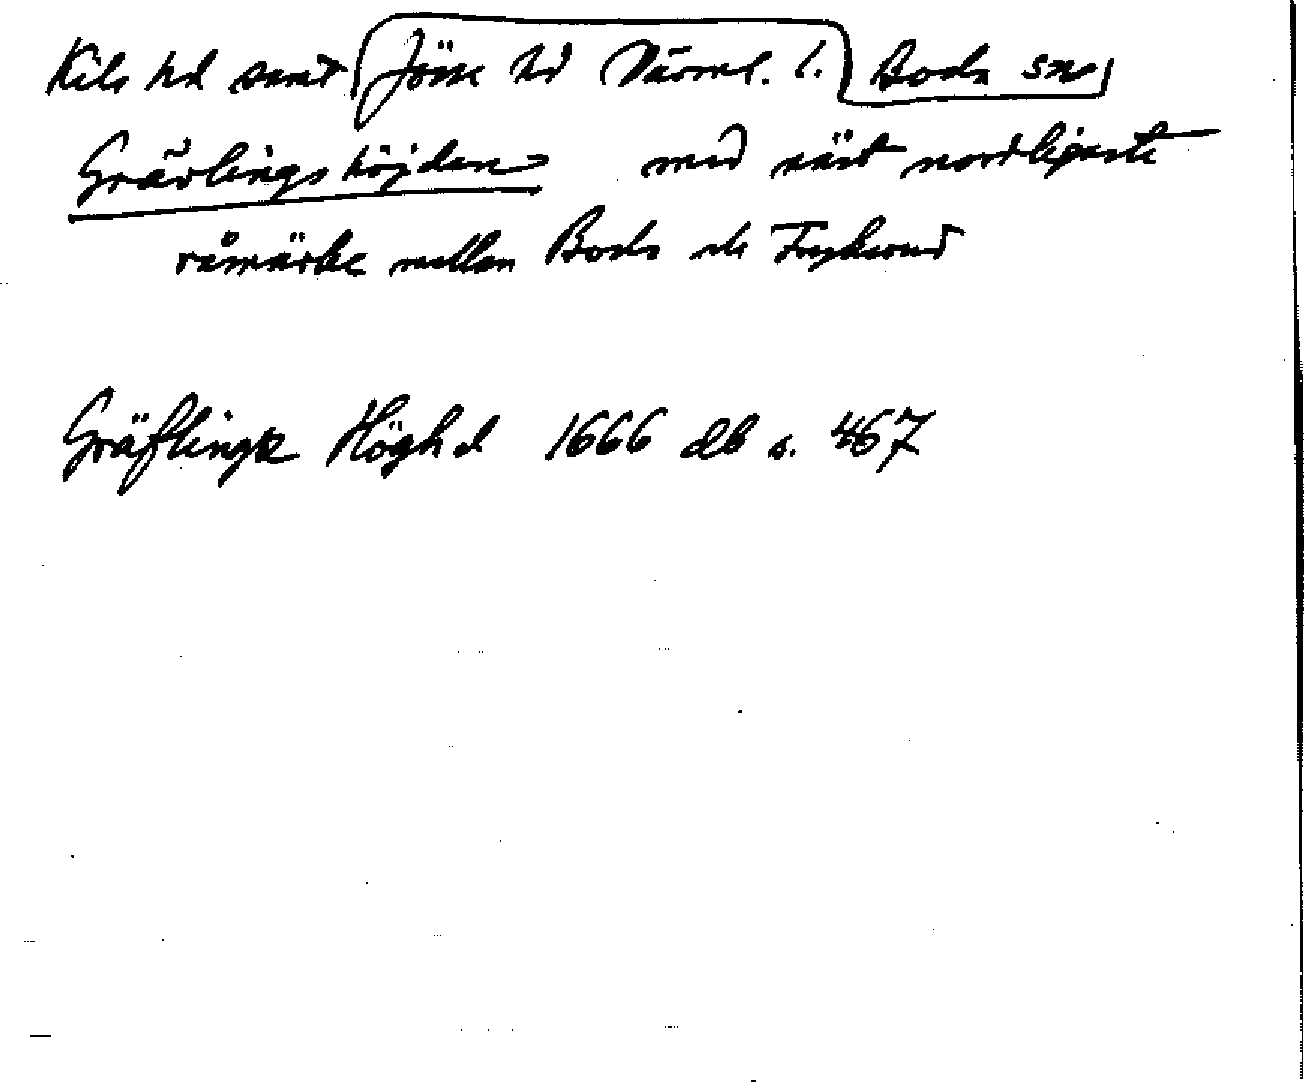 Kils hd samt Jösse hd Värml. l. Boda sn
Grävlingshöjden med näst nordligaste
råmärke mellan Boda och Frykerud
Gräflingz Höghd 1666 db s. 467